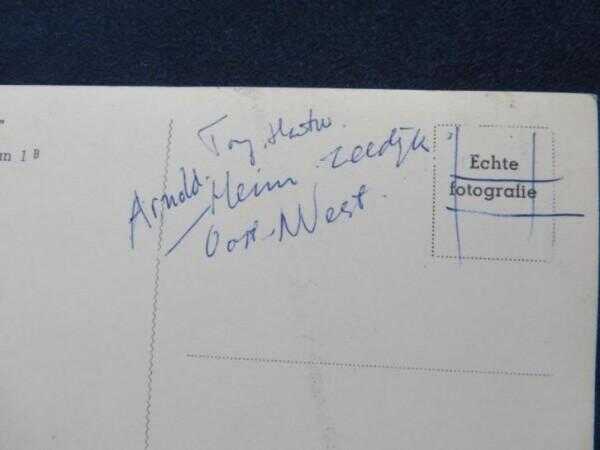 m 1 B
Arnold.
Heim Zeedijk
Oost-West.
Echte
fotografie